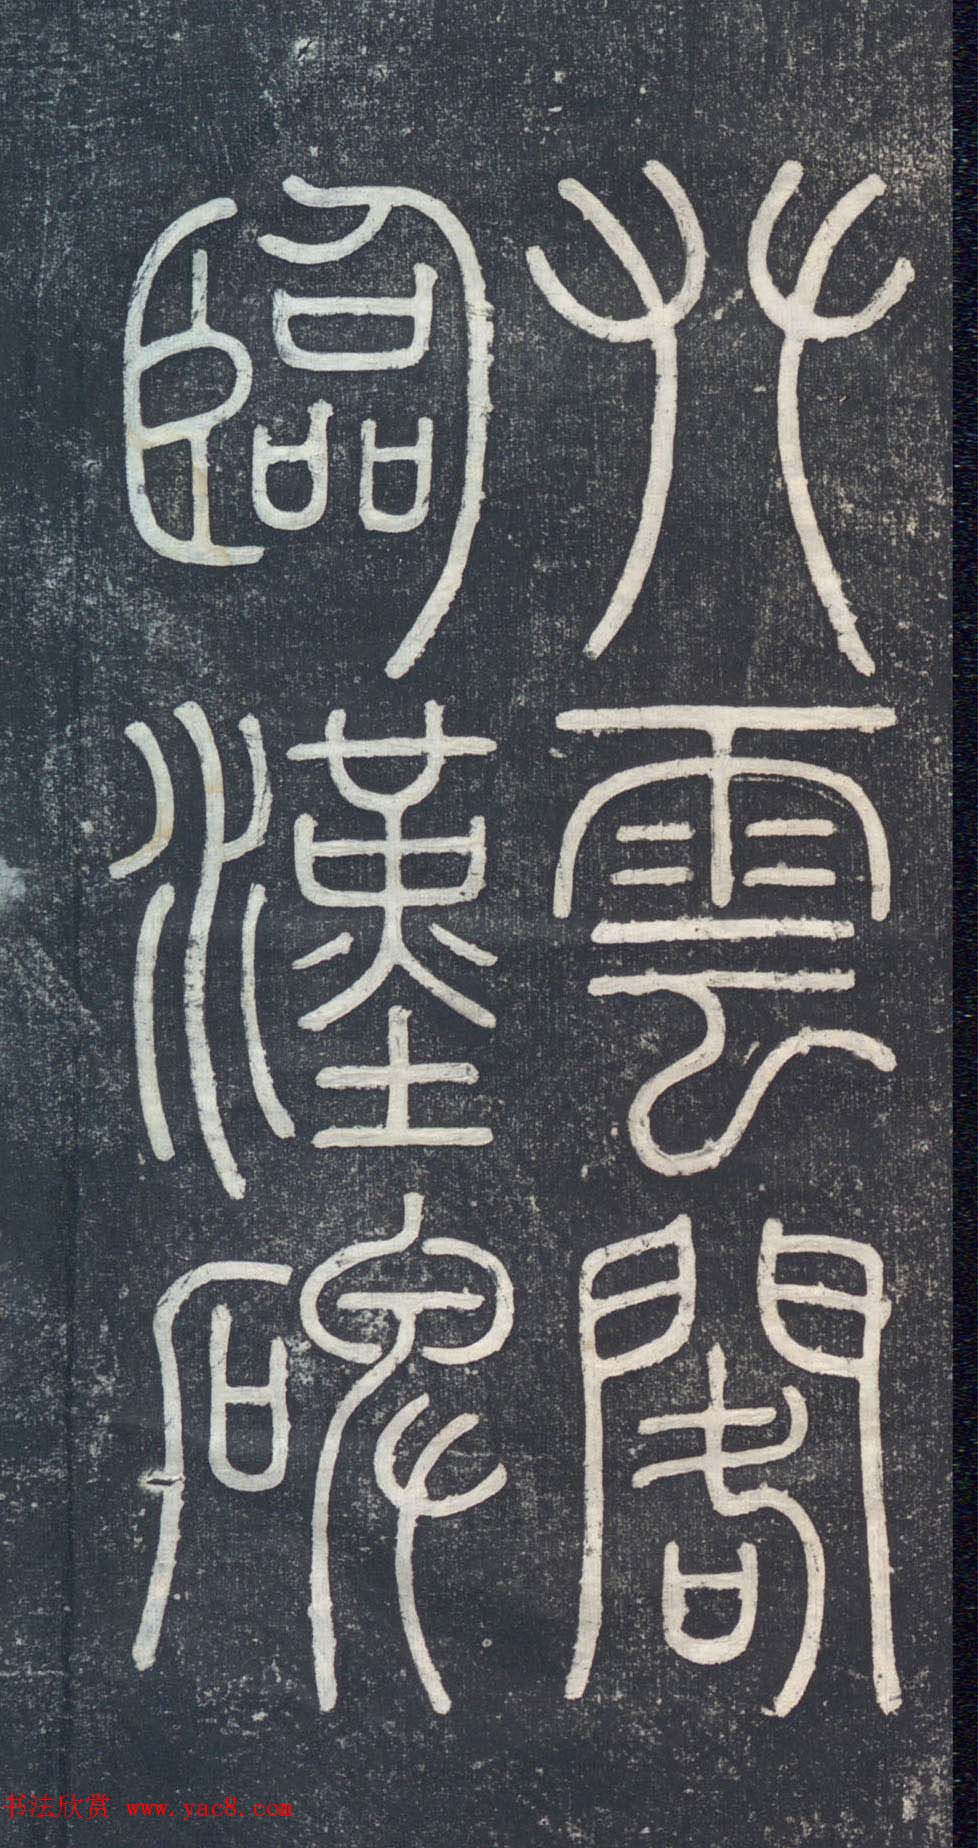 攀雲閣
臨漢碑
书法欣赏 www.yac8.com